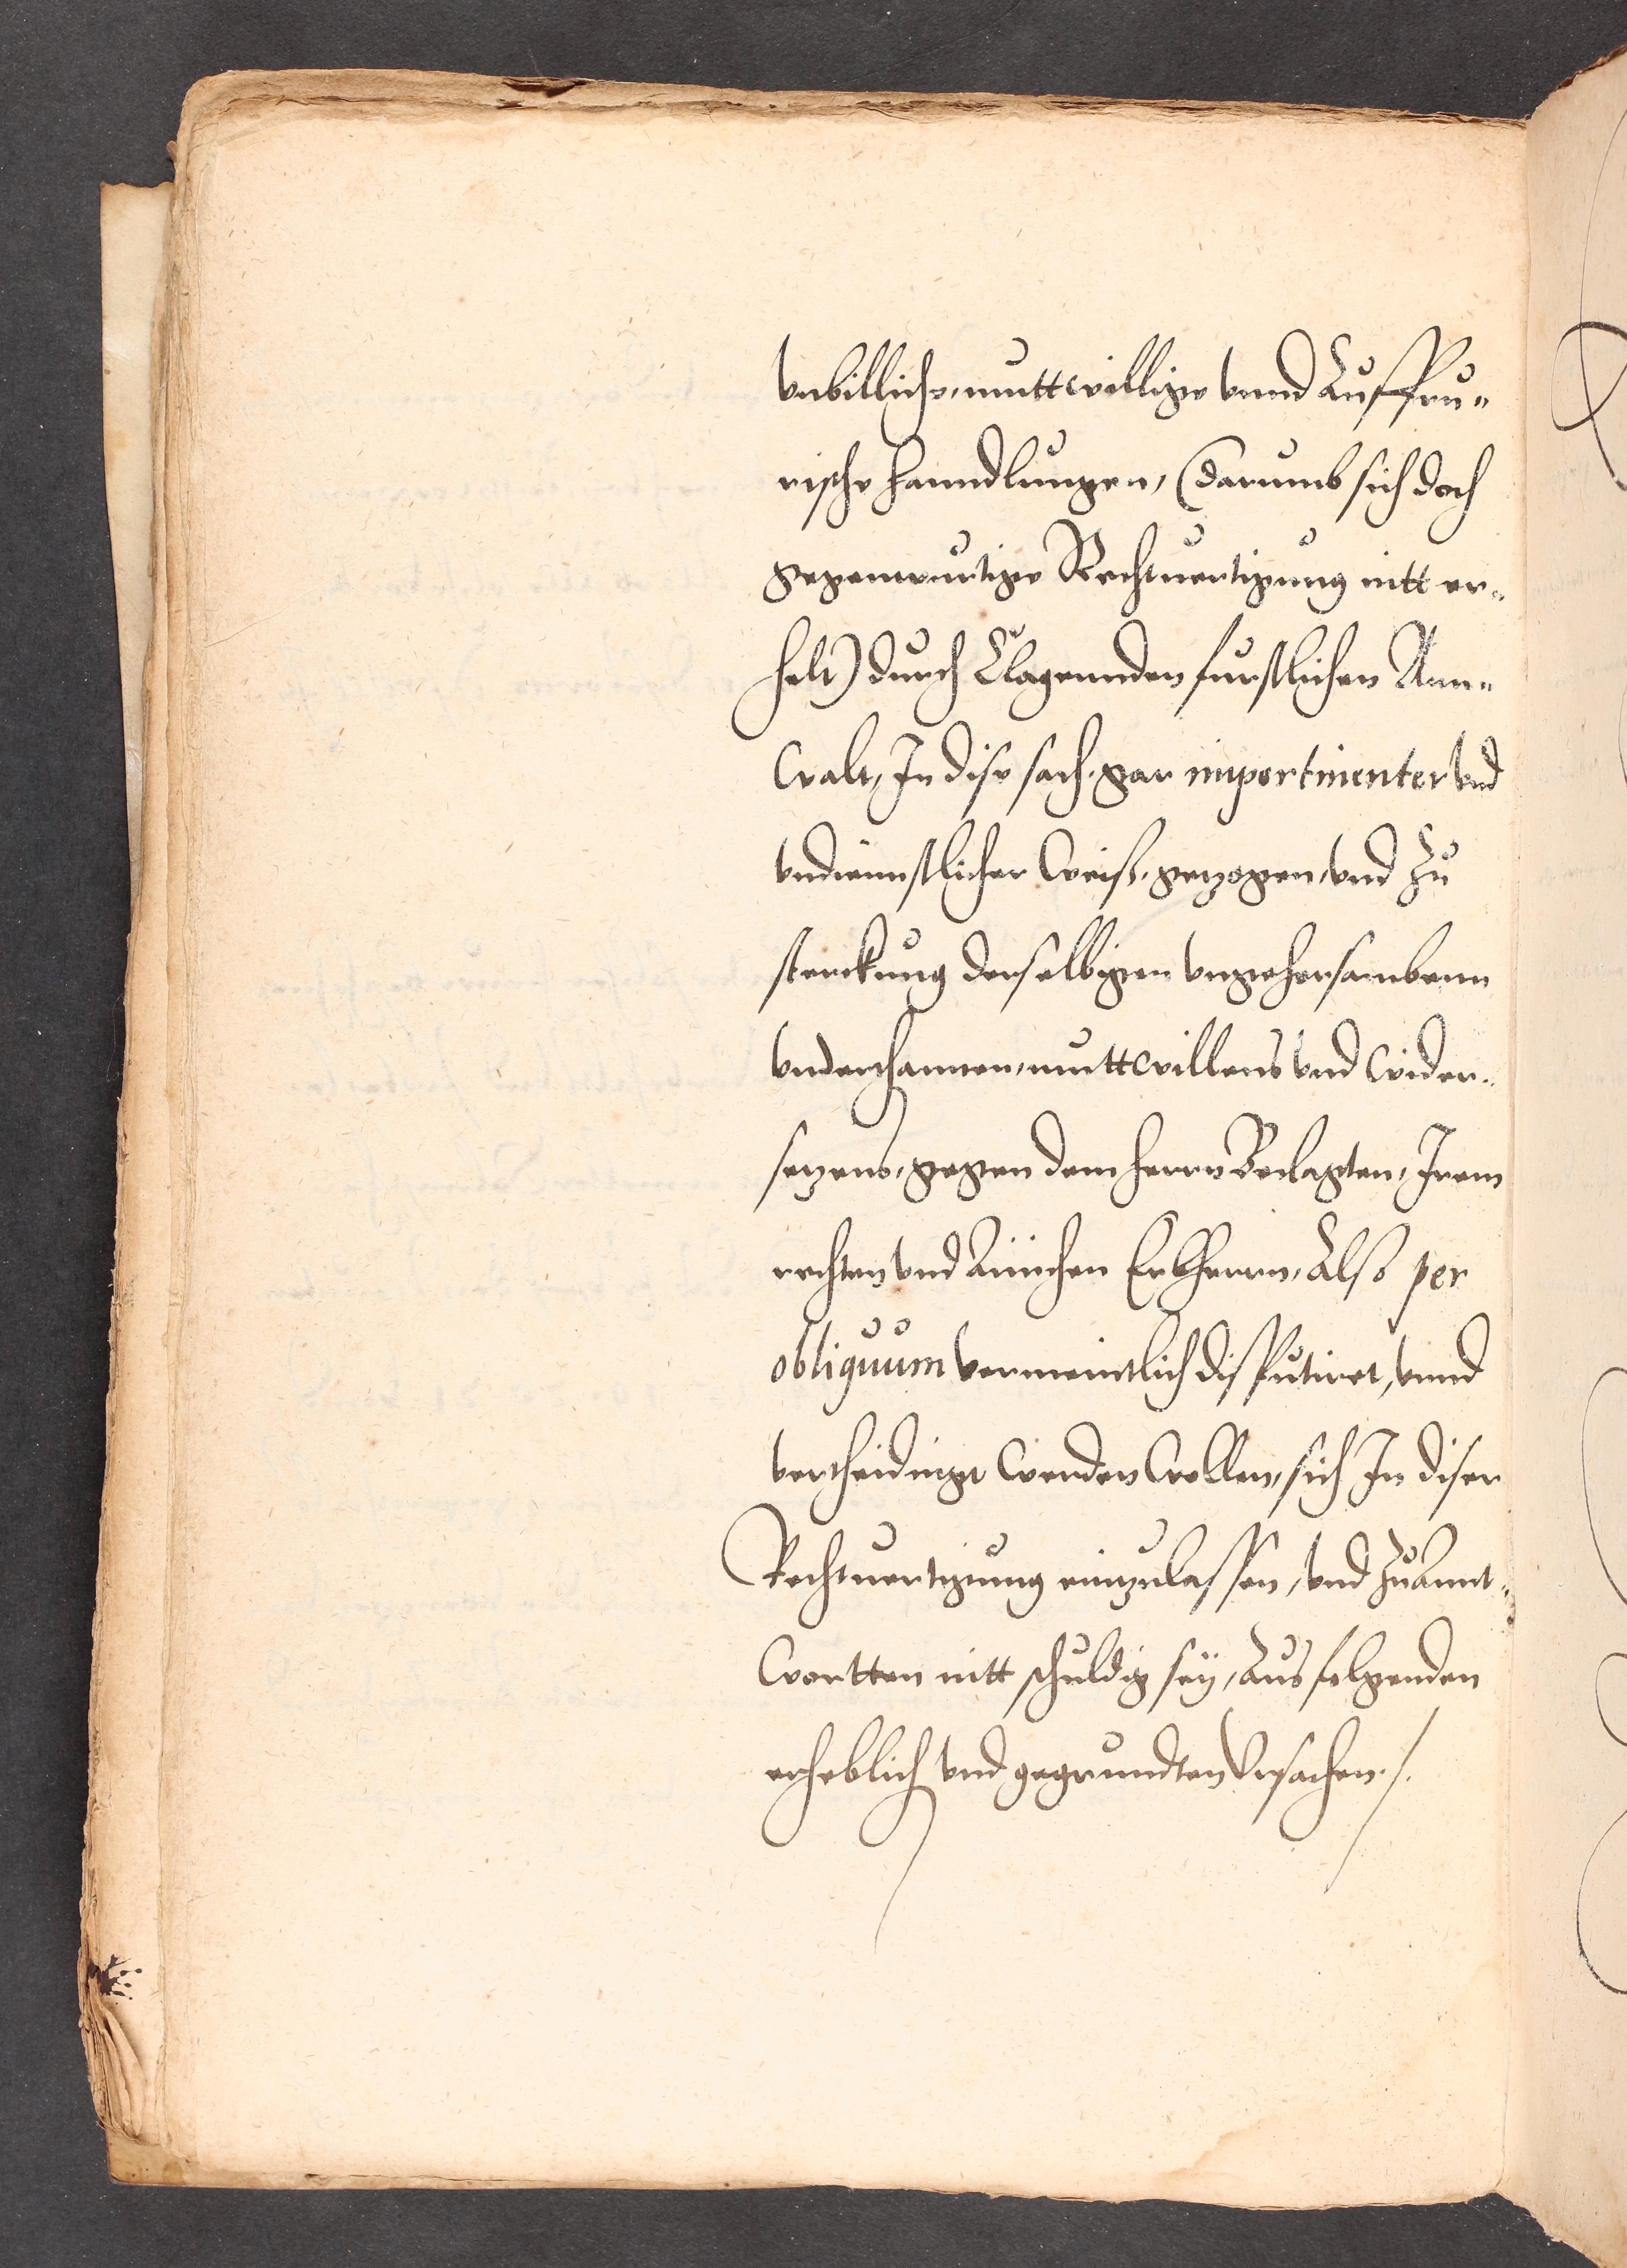 vnbilliche, muttwillige vnnd Auffru„
rische hanndlungen, (darumb sich doch
gegenwurtige Rechtuertigung nitt er„
helt) durch Clagennden furstlichen Ann„
walt, In dise sach, gar impertinenter vnd
vndiennstlicher weiß, gezogen, vnd zu
sterckung derselbigen vngehorsambenn
vnderthannen, muttwillens vnd wider„
setzens, gegen dem herrn Beclagten, Irem
rechten vnd Ainichen Erbherrn, Also per
obliquum vermeintlich disputiret, vnnd
verthaidingt werden wollen, sich In diser
Rechtuertigung einzulassen, vnd zu Annt„
wortten nitt schuldig sey, Aus folgenden
erheblich vnd gegrundten Vrsachen./.